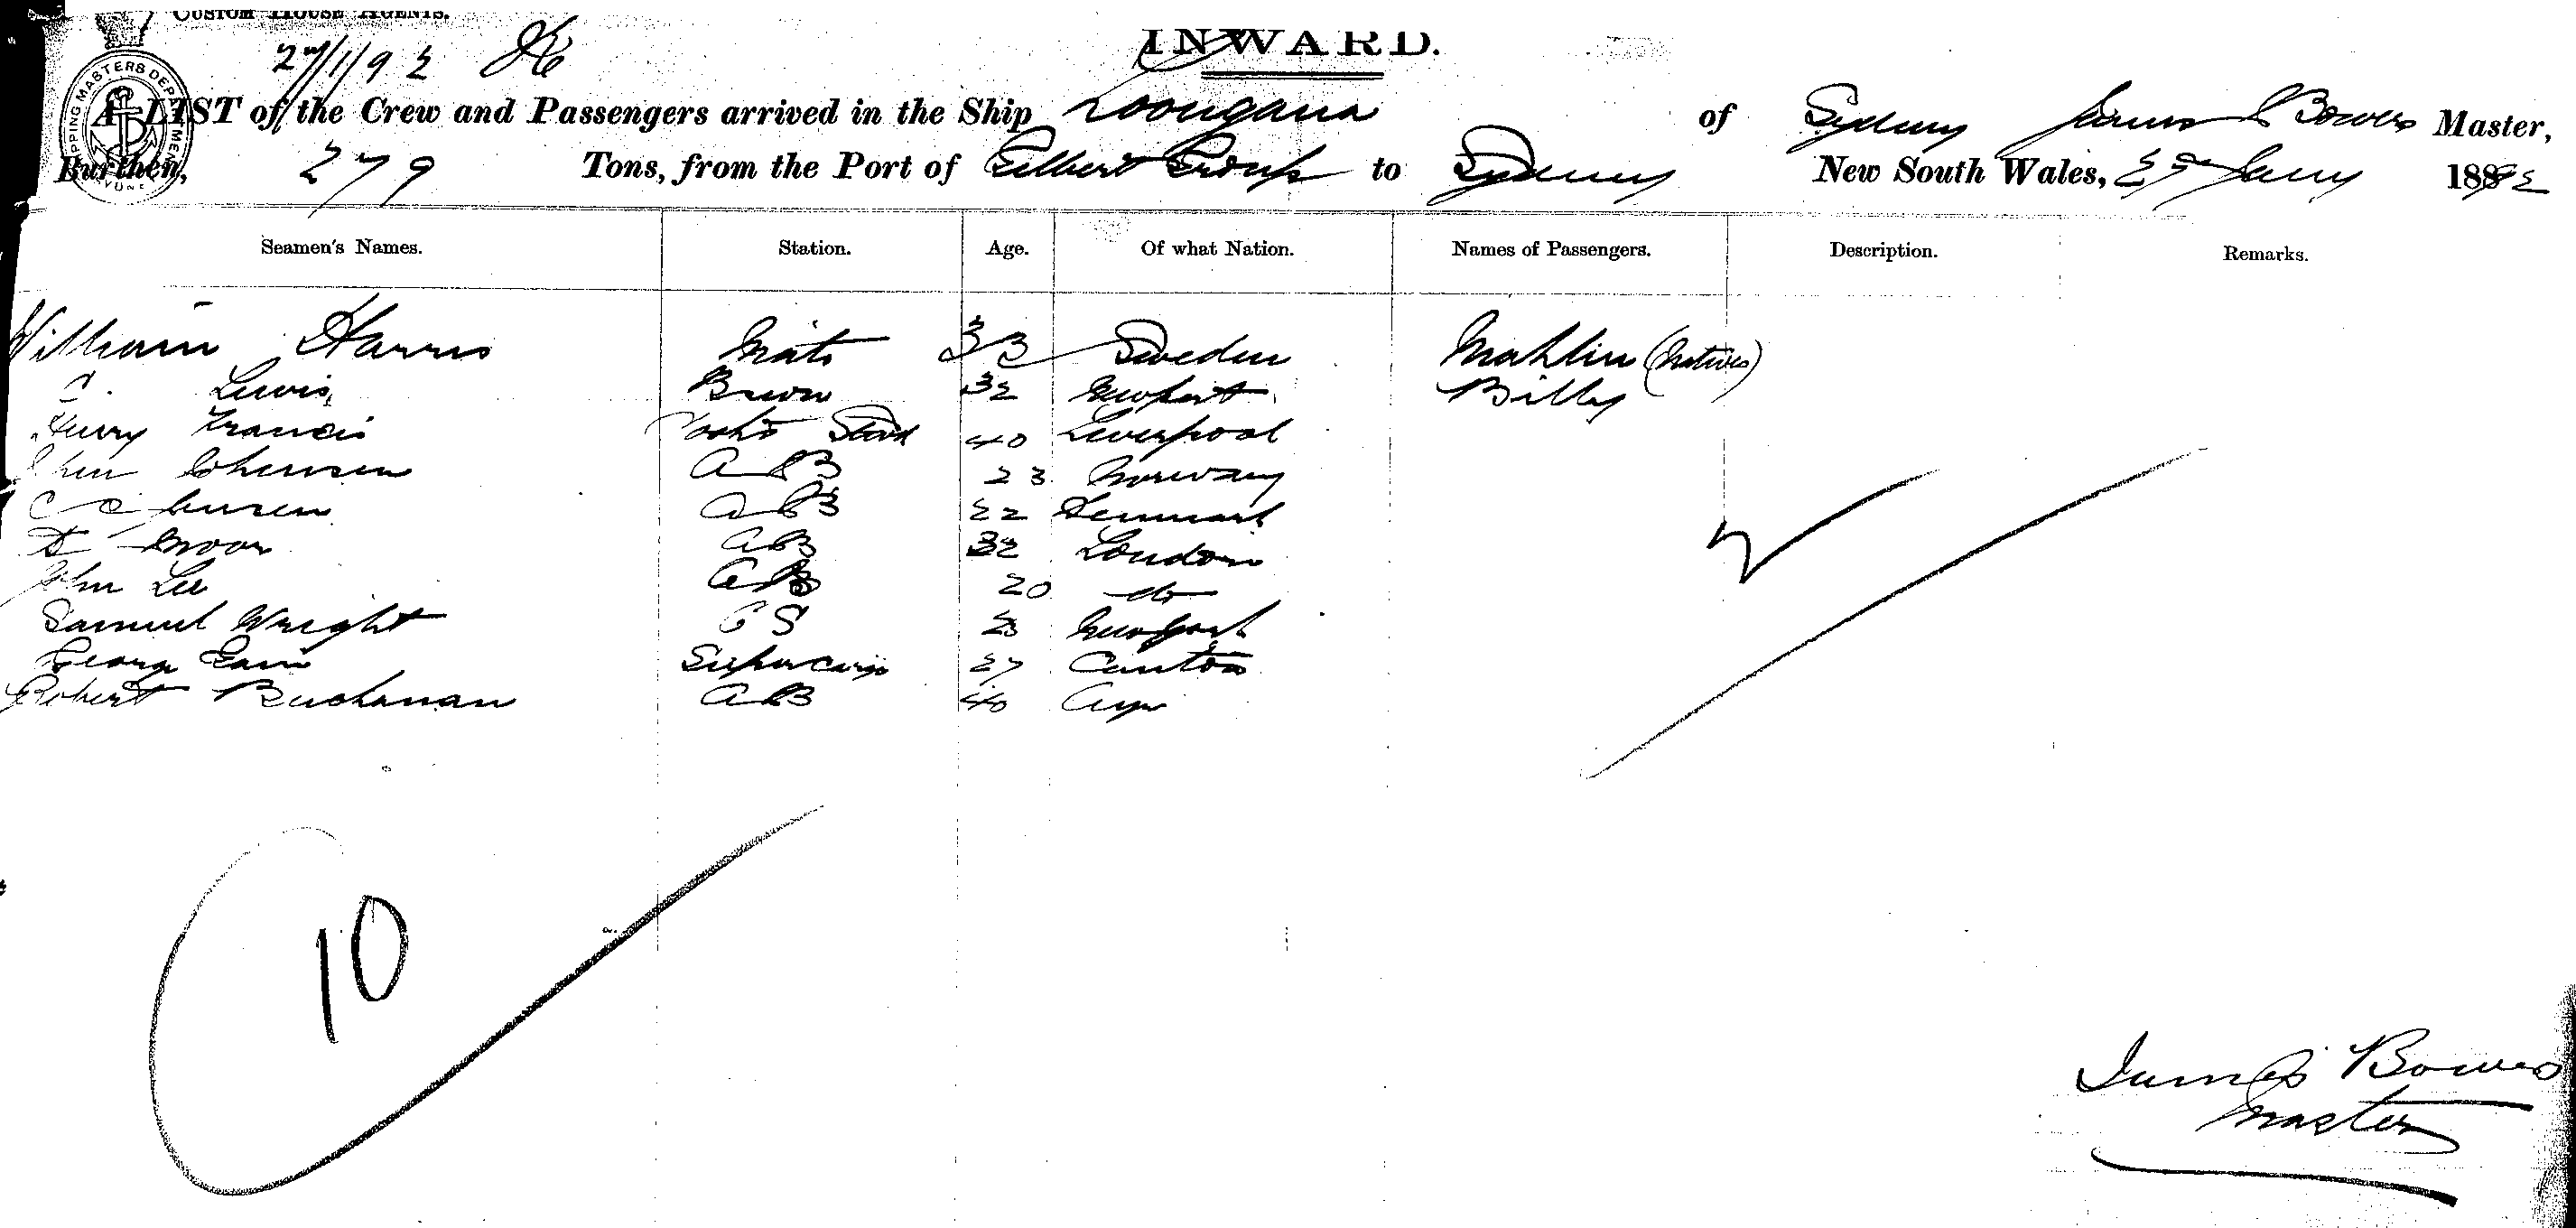 CUSTOM HOUSE AGENTS.
INWARD.
SHIPPING MASTERS DEPARTMENT
A LIST of the Crew and Passengers arrived in the Ship Loongana of Sydney James Bowes Master,
Burthen, 279 Tons, from the Port of Gilbert Group to Sydney New South Wales, Jany 1892
Seamen's Names. Station. Age. Of what Nation. Names of Passengers. Description. Remarks.
William Harris Mate 33 Sweden Mahlin (Natives)
C. Lewis 32 Newport Billy
Henry Francis Cook & Stwd 40 Liverpool
AB 23 Norway
C C Jensen AB 22 Denmark
AB 32 London
John Lee AB 20 do
Samuel Wright 23
George Supercargo 27 Canton
Robert Buchanan AB 40 Ayr
10
James Bowes
Master